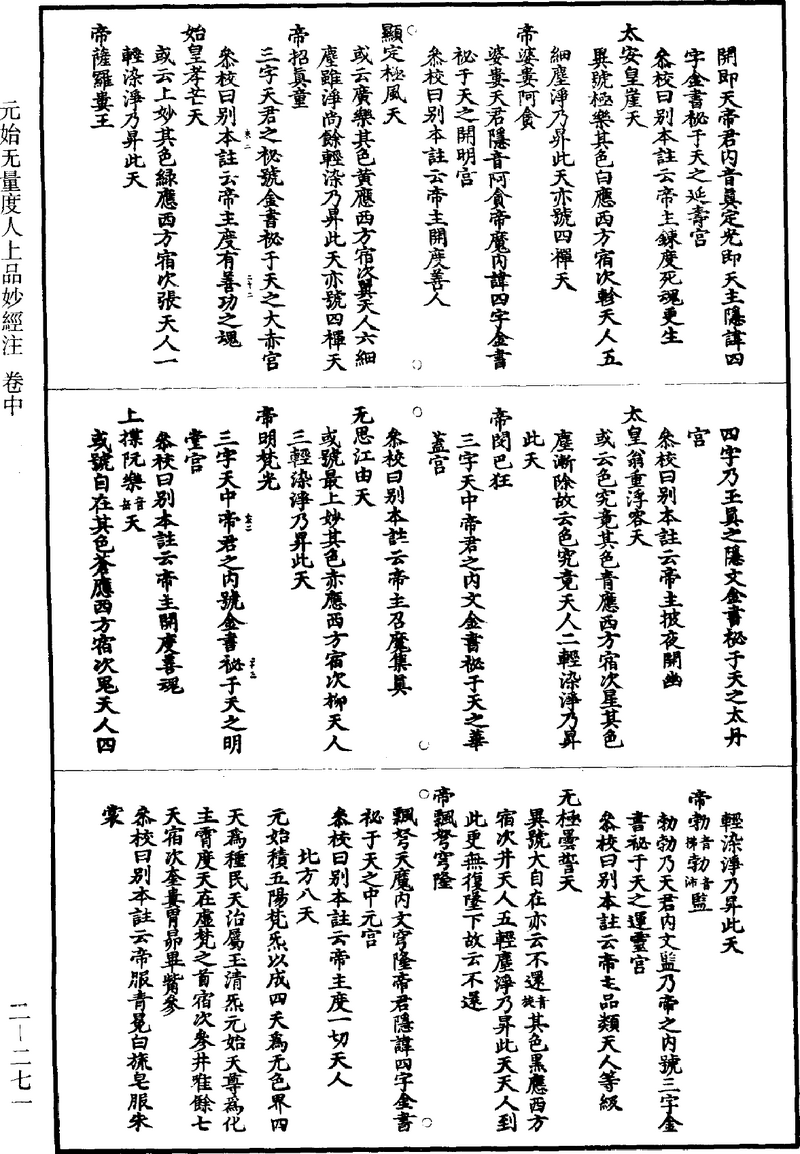 開即天帝君内音真定光即天主隱諱四
字金書祕于天之延壽宫
叅校曰别本註云帝主鍊度死魂更生
太安皇崖天
異號極樂其色白應西方宿次軫天人五
細塵淨乃昇此天亦號四禪天
帝婆婁阿貪
婆婁天君隱音阿貪帝魔内諱四字金書
祕于天之開明宫
叅校曰别本註云帝主開度善人
顯定極風天
或云廣樂其色黄應西方宿次翼天人六細
塵雖淨尚餘輕染乃昇此天亦號四禪天
帝招真童
三字天君之祕號金書祕于天之大赤宫
叅校曰别本註云帝主度有善功之魂
始皇孝芒天
或云上妙其色綠應西方宿次張天人一
輕染淨乃昇此天
帝薩羅婁王
四字乃王真之隱文金書祕于天之太丹
宫
叅校曰别本註云帝主披夜開幽
太皇翁重浮容天
或云色究竟其色青應西方宿次星其色
塵漸除故云色究竟天人二輕染淨乃昇
此天
帝閔巴狂
三字天中帝君之内文金書祕于天之華
蓋宫
叅校曰别本註云帝主召魔集真
无思江由天
或號最上妙其色亦應西方宿次柳天人
三輕染淨乃昇此天
帝明梵光
三字天中帝君之内號金書祕于天之明
堂宫
叅校曰别本註云帝主開度善魂
上揲阮樂音岳天
或號自在其色蒼應西方宿次鬼天人四
輕染淨乃昇此天
帝勃音怫勃音沛監
勃勃乃天君内文監乃帝之内號三字金
書祕于天之運靈宫
叅校曰别本註云帝主品類天人等級
无極曇誓天
異號大自在亦云不還音旋其色黑應西方
宿次井天人五輕塵淨乃昇此天天人到
此更無復墜下故云不還
帝飄弩穹隆
飄弩天魔内文穹隆帝君隱諱四字金書
祕于天之中元宫
叅校曰别本註云帝主度一切天人
北方八天
元始積五陽梵炁以成四天為无色界四
天為種民天治屬玉清炁元始天尊為化
主霄度天在虛梵之首宿次參井唯餘七
天宿次奎婁胃昴畢觜參
叅校曰别本註云帝服青冕白旒皂服朱
裳
元始无量度人上品妙經注 卷中
二—二七一